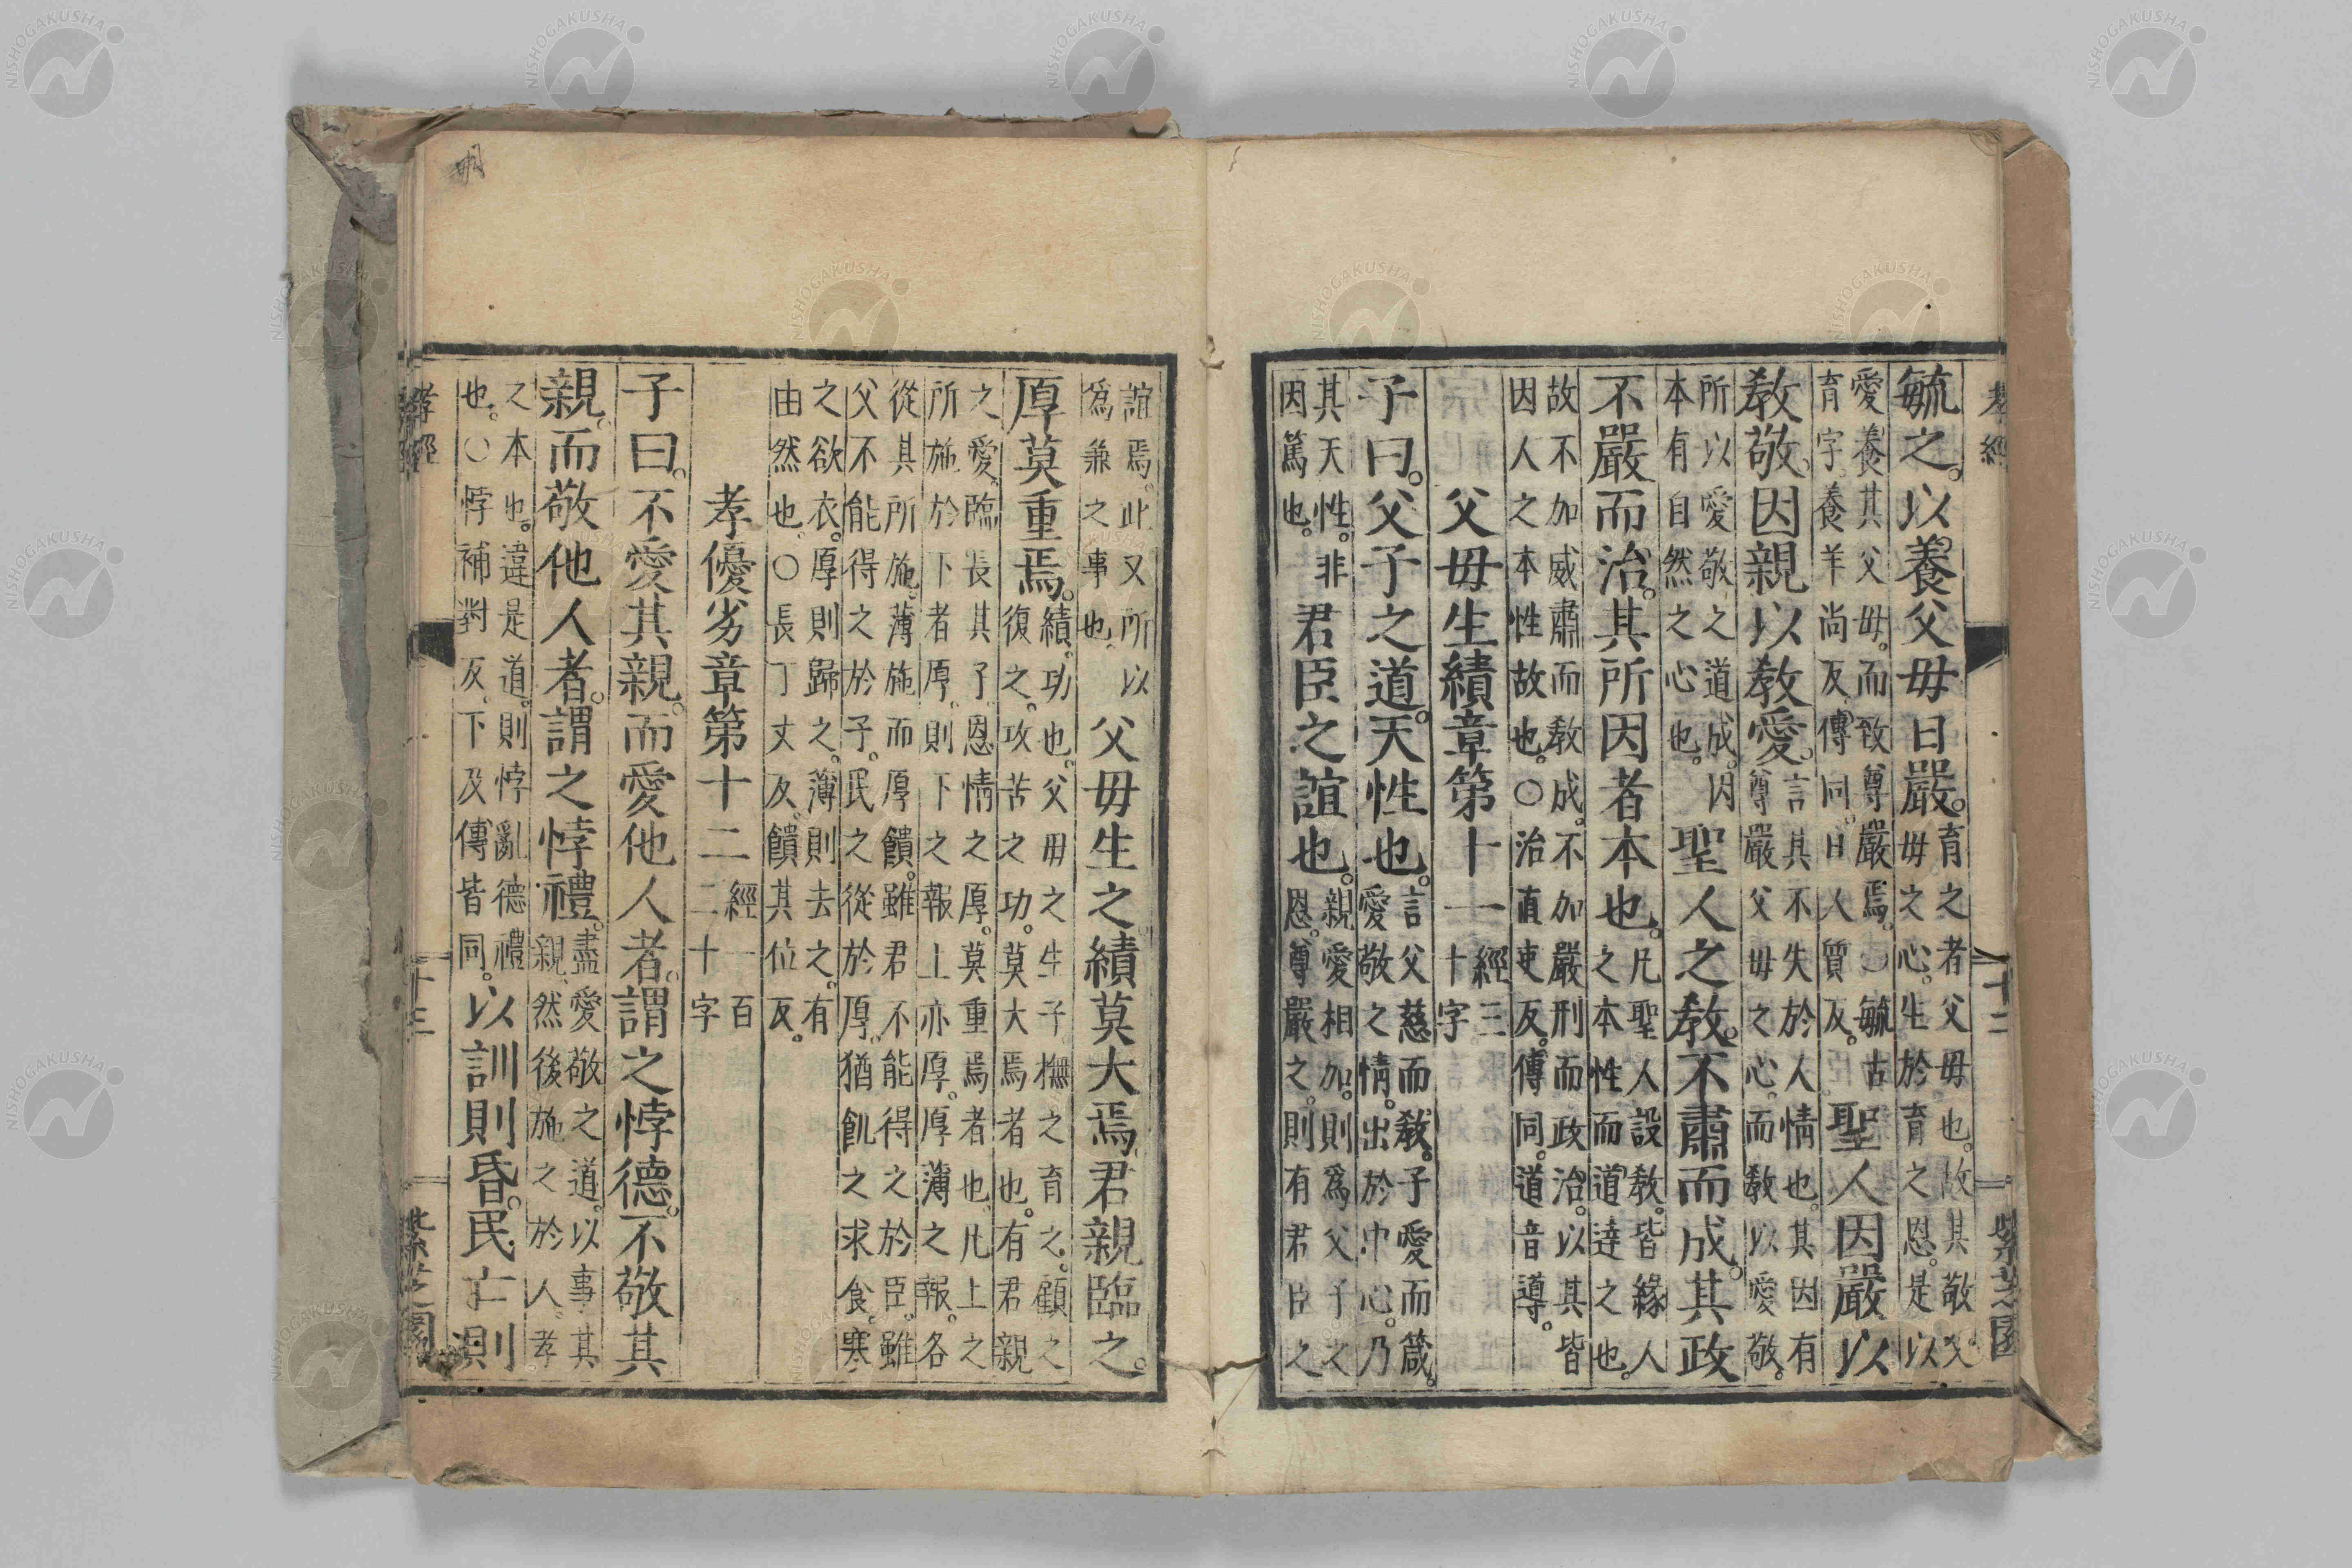 孝經
十二
紫芝園
毓之。以養父母日嚴。
育之者父母也。故其敬父
母之心。生於育之恩。是以
愛養其父母。而致尊嚴焉。○毓古
育字養羊尚反、傳同。日人質反。
聖人因嚴以
教敬。因親以教愛。
言其不失於人情也。其因有
尊嚴父母之心。而教以愛敬。
所以愛敬之道成。因
本有自然之心也。
聖人之教。不肅而成。其政
不嚴而治。其所因者本也。
凡聖人設教。皆緣人
之本性而道達之也。
故不加威肅而教成。不加嚴刑而政治。以其皆
因人之本性故也。○治直吏反。傳同。道音導。
父母生績章第十一
經三
十字
子曰。父子之道。天性也。
言父慈而教。子愛而箴。
愛敬之情。出於中心。乃
其天性。非
因篤也。
君臣之誼也。
親愛相加。則爲父子之
恩。尊嚴之。則有君臣之
誼焉。此又所以
爲兼之事也。
父母生之。績莫大焉。君親臨之。
厚莫重焉。
績。功也。父母之生子。撫之育之。顧之
復之。攻苦之功。莫大焉者也。有君親
之愛。臨長其子。恩情之厚。莫重焉者也。凡上之
所施於下者厚。則下之報上亦厚。厚薄之報。各
從其所施。薄施而厚饋。雖君不能得之於臣。雖
父不能得之於子。民之從於厚。猶飢之求食。寒
之欲衣。厚則歸之。薄則去之。有
由然也。○長丁丈反、饋其位反。
孝優劣章第十二
經一百
二十字
子曰。不愛其親。而愛他人者。謂之悖德。不敬其
親。而敬他人者。謂之悖禮。
盡愛敬之道。以事其
親。然後施之於人。孝
之本也。違是道。則悖亂德禮
也。○悖補對反、下及傳皆同。
以訓則昏。民亡則
孝經
十三
紫芝園